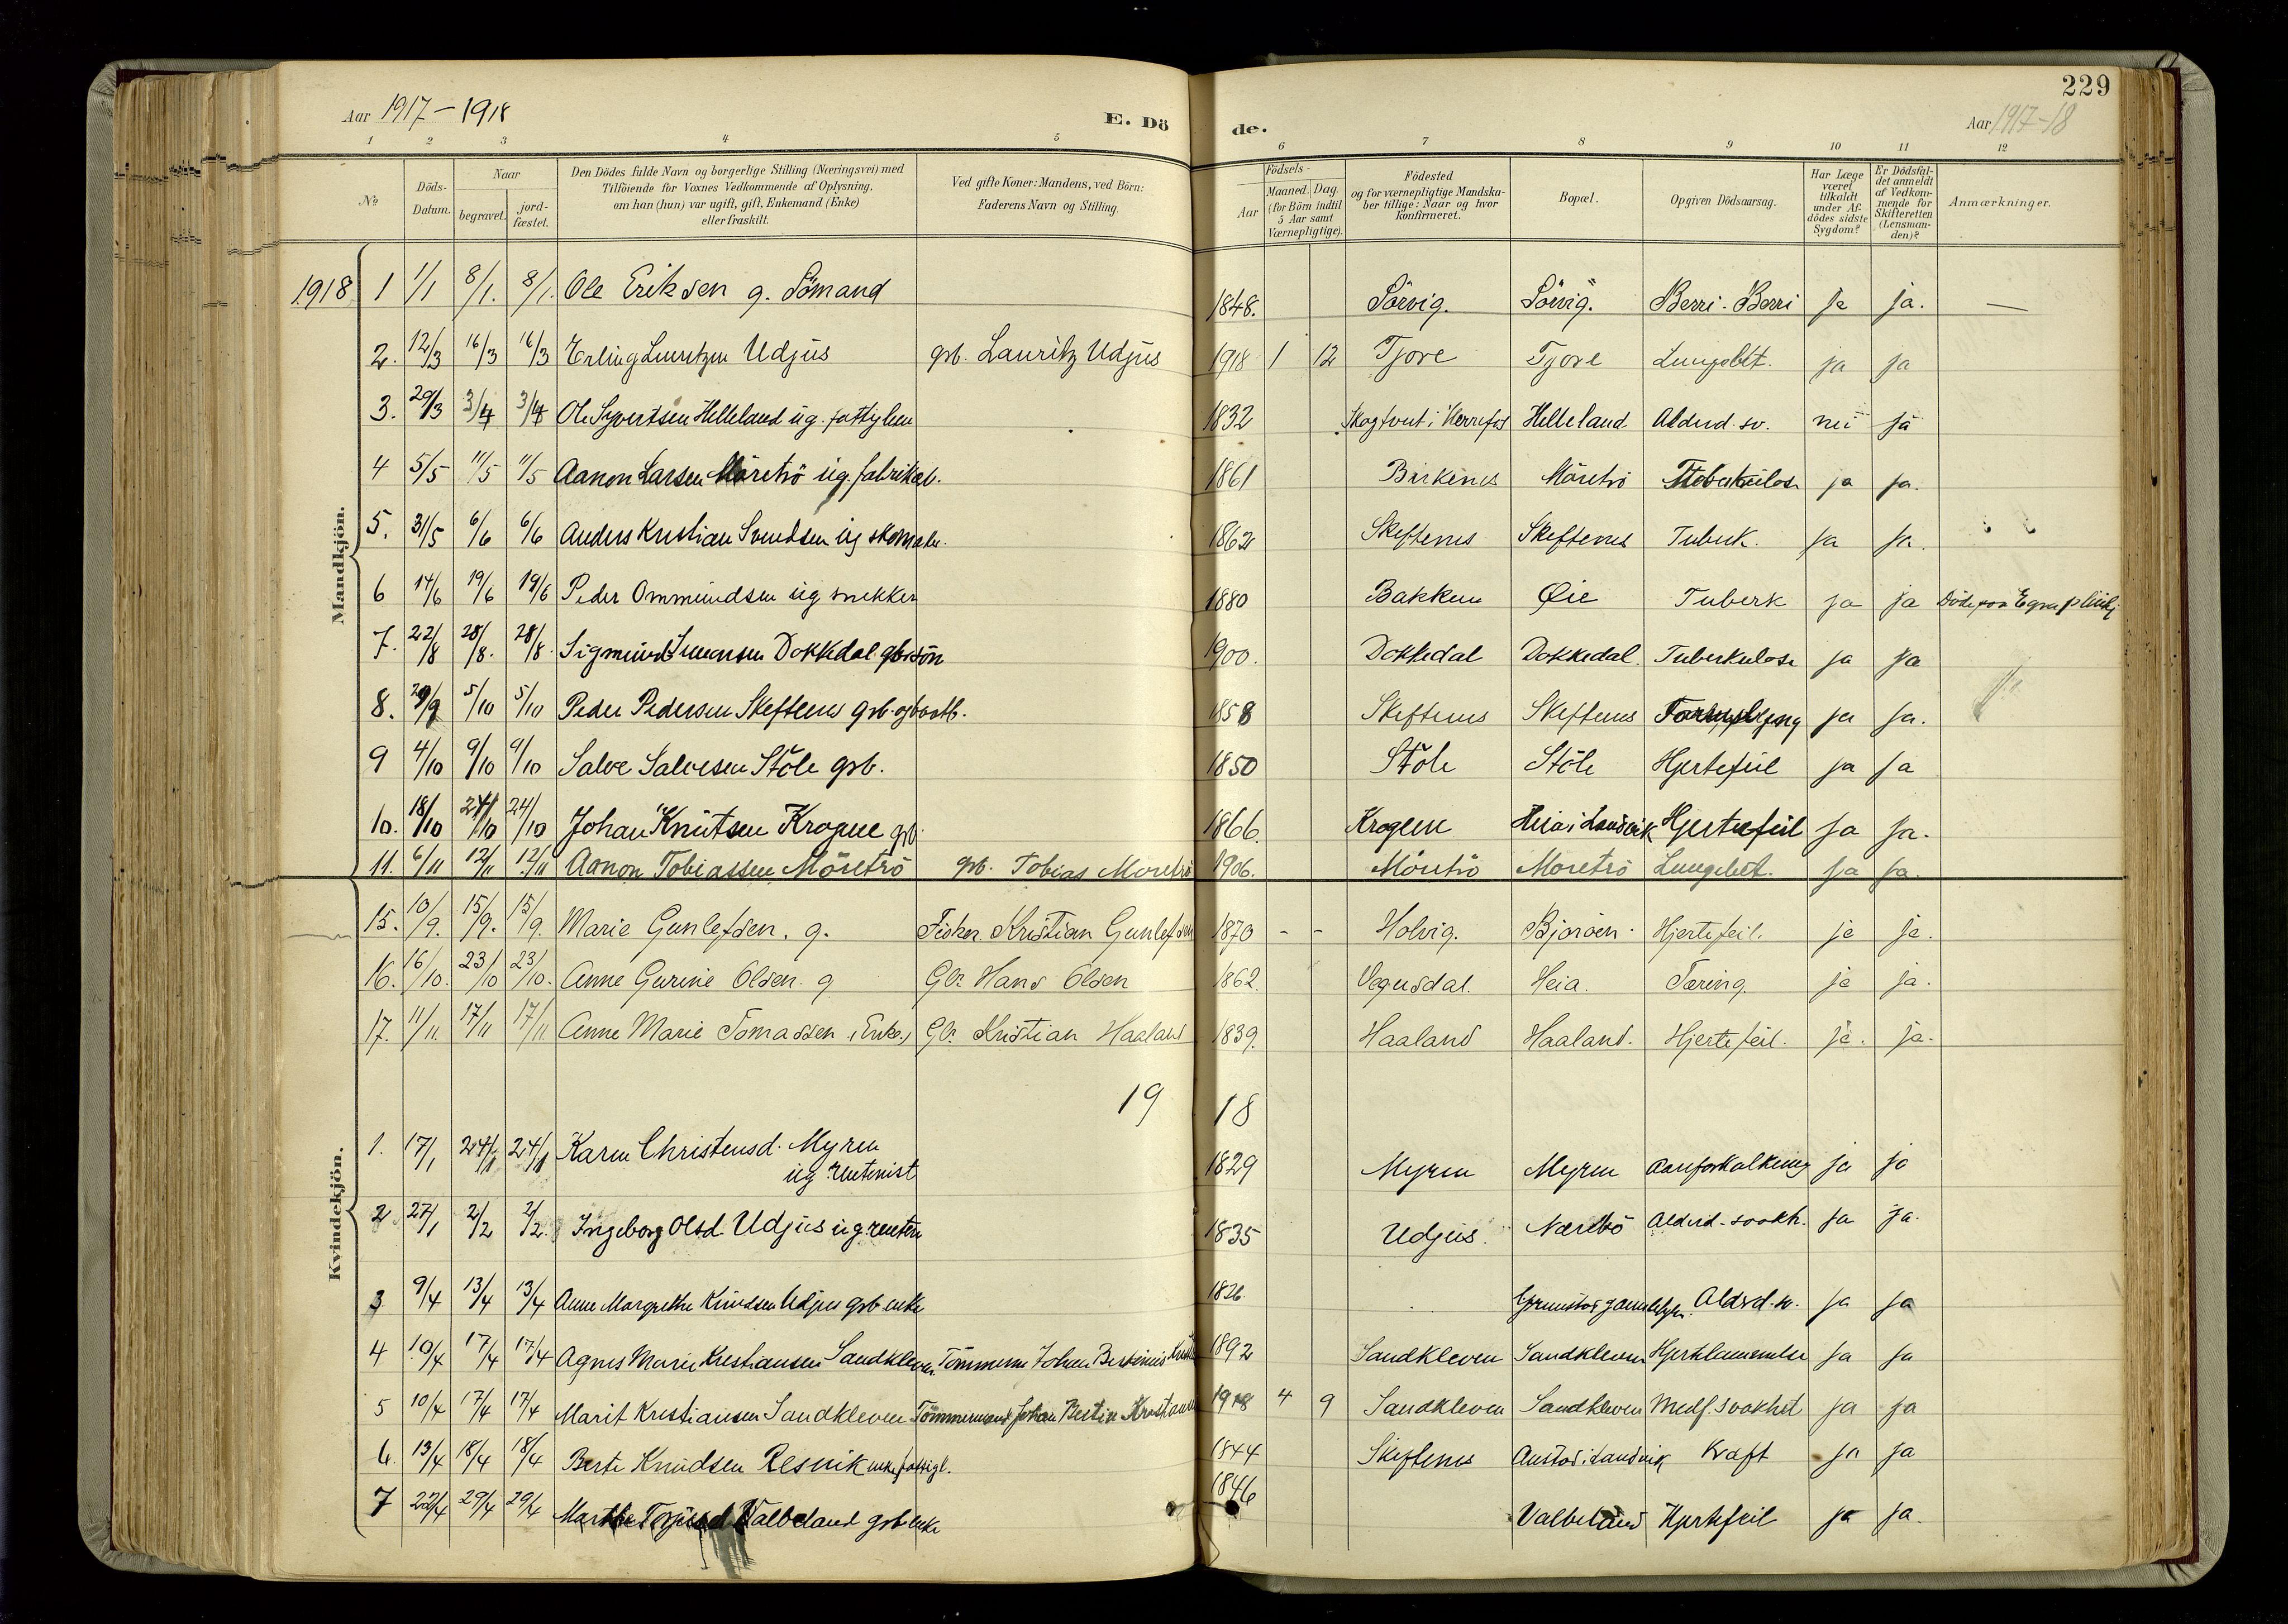 229
Aar 1917-1918 E. Dö de. Aar 1917-18
1 2 3 4 5 6 7 8 9 10 11 12
№ Döds-Datum. Naar begravet. jord-fæstet. Den Dödes fulde Navn og borgerlige Stilling (Næringsvei) med Tilföiende for Voxnes Vedkommende af Oplysning, om han (hun) var ugift, gift, Enkemand (Enke) eller fraskilt. Ved gifte Koner: Mandens, ved Börn: Faderens Navn og Stilling. Födsels- Aar Maaned. Dag. (for Börn indtil 5 Aar samt Værnepligtige). Födested og for værnepligtige Mandskaber tillige: Naar og hvor konfirmeret. Bopæl. Opgiven Dödsaarsag. Har Læge været tilkaldt under Afdödes sidste Sygdom? Er Dödsfaldet anmeldt af Vedkommende for Skifteretten (Lensmanden)? Anmærkninger.
Mandkjön.
1918 1 1/1 8/1. 8/1. Ole Eriksen g. Sömand 1848. Sörvig. Sörvig. Berri-Berri ja ja. —
2. 12/3 16/3 16/3 Erling Lauritzen Udjus grb. Lauritz Udjus 1918 1 12 Tjore Tjore Lungebet. ja ja
3. 29/3 3/4 3/4 Ole Syvertsen Helleland ug. fattiglem 1832 Helleland Alderd. sv. nei ja
4 5/5 11/5 11/5 Aanon Larsen Möretrö ug. fabrikarb. 1861 Birkenes Möretrö Tuberkulose ja ja.
5. 31/5 6/6 6/6 Anders Kristian Svendsen ug skomaker. 1862 Skeftenes Skeftenes Tuberk. ja ja.
6 14/6 19/6 19/6 Peder Ommundsen ug snekker 1880 Bakken Øie Tuberk ja ja Döde paa
7. 22/8 28/8. 28/8. Sigmund Dokkedal gbr.sön 1900. Dokkedal Dokkedal. Tuberkulose ja ja
8. 29/9 5/10 5/10 Peder Pedersen Skeftenes grb. og 1858 Skeftenes Skeftenes ja ja.
9 4/10 9/10 9/10 Salve Salvesen Stöle grb. 1850 Stöle Stöle Hjertefeil ja ja
10. 18/10 24/10 24/10 Johan Knutsen Krogene grb. 1866. Krogene Heia i Landvik Hjertefeil ja ja.
11. 6/11 12/11 12/11 Aanon Tobiassen Möretrö grb. Tobias Möretrö 1906. Möretrö Möretrö Lungebet. ja ja.
Kvindekjön.
15. 10/9. 15/9. 15/9. Marie Gunlefsen. g. Fisker. Kristian Gunlefsen 1870 - - Holvig. Bjorøen. Hjertefeil. ja ja.
16. 16/10. 23/10 23/10. Anne Gurine Olsen. g Gbr. Hans Olsen 1862. Vegusdal. Heia. Tæring. ja ja.
17. 11/11. 17/11 17/11 Anne Marie Tomassen (Enke.) Gbr. Kristian Haaland 1839. Haaland Haaland. Hjertefeil. ja. ja.
19 18
1. 17/1 24/1 24/1 Karen Christensd. Myren
ug rentenist 1829 Myren Myren Aareforkalkning ja ja
2 27/1 2/2 2/2. Ingeborg Olsd. Udjus ug. renten 1835 Udjus. Nærebö Alderd.svakh. ja ja.
3 9/4 13/4 13/4 Anne Margrethe Knudsen Udjus grb. enke 1826 Grimstad gamlehjem. Alderd. sv. ja ja
4 10/4 17/4 17/4 Agnes Marie Kristiansen Sandkleven. Tömmerm. Johan 1892 Sandkleven Sandkleven Hjertelammelse ja ja
5 10/4 17/4 17/4 Marit Kristiansen Sandkleven Tömmermand Johan Bertin Kristiansen 1918 4 9 Sandkleven Sandkleven Medf. svakhet ja ja
6. 13/4 18/4 18/4 Berte Knudsen Resvik enke fattigl. 1844 Skeftenes Austad i Landvik Kræft ja ja
7 22/4 29/4 29/4 Marthe Valbeland grb enke 1846 Valbeland Hjertefeil ja ja.